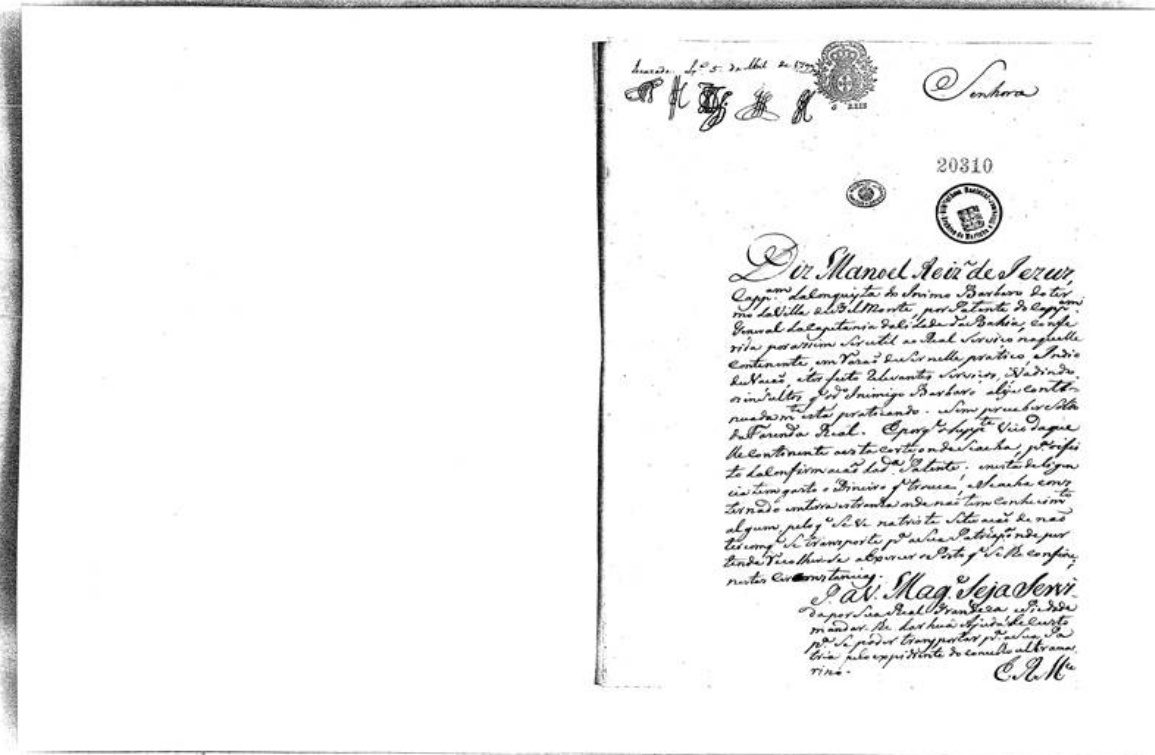 Escuzado. Lx.ª 5 de Abril de 1799
Senhora
20310
Diz Manoel Roiz~ de Jezuz,
Capp.am da Conquista do Inimo Barbaro do ter
mo da Villa de Bel Monte, por Patente do Capp.am
General da Capitania da Cidade da Bahia, confe
rida por assim ser util ao Real Serviço naquelle
continente, em razaõ de ser nelle prático, Indio
de Naçaõ, e ter feito relevantes serviços,
os insultos q o d.º Inimigo Barbaro alij conti-
nuadam.te está praticando. sem preceber Soldo
da Fazenda Real. E porq o Supp.te veio daque
lle continente a esta corte, onde se acha, p.ª o efei
to da confirmaçaõ da d.ª Patente; e nesta deligen
cia tem gasto o Dinheiro q trouce, e se acha cons
ternado em terra estranha onde naõ tem conhecim.to
algum, pelo q Se ve na triste Situaçaõ de naõ
ter com q Se transporte p.ª a sua Patria, onde per
tende recolherse a exercer o Posto q Se lhe confirio,
nestas Circomstancias.
P. a V. Mag.e Seja Servi-
da por Sua Real Grandeza e Piedade
mandar-lhe dar huã Ajuda de Custo
p.ª Se poder transportar p.ª a sua Pa
tria pelo expidiente do concelho ultrama
rino.
E. R. M.ce